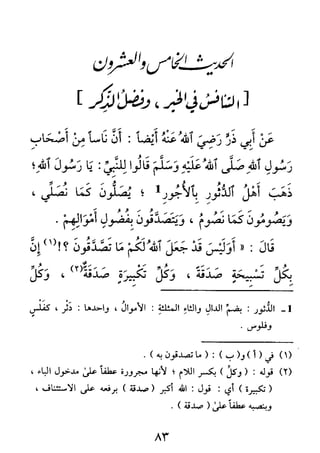 الحديث الخامس والعشرون
[ التنافس في الخير ، وفضل الذكر ]
عَنْ أَبِي ذَرٍّ رَضِيَ اللهُ عَنْهُ أَيْضاً : أَنَّ نَاساً مِنْ أَصْحَابِ
رَسُولِ اللهِ صَلَّى اللهُ عَلَيْهِ وَسَلَّمَ قَالُوا لِلنَّبِيِّ : يَا رَسُولَ اللهِ ؛
ذَهَبَ أَهْلُ الدُّثُورِ بِالأُجُورِ1 ؛ يُصَلُّونَ كَمَا نُصَلِّي ،
وَيَصُومُونَ كَمَا نَصُومُ ، وَيَتَصَدَّقُونَ بِفُضُولِ أَمْوَالِهِمْ .
قَالَ : « أَوَلَيْسَ قَدْ جَعَلَ اللهُ لَكُمْ مَا تَصَدَّقُونَ ؟!(١) إِنَّ
بِكُلِّ تَسْبِيحَةٍ صَدَقَةً ، وَكُلِّ تَكْبِيرَةٍ صَدَقَةٌ(٢) ، وَكُلِّ
1 ـ الدُّثور : بضم الدال والثاء المثلثة : الأموالُ ، واحدها : دَثْر ، كفَلْسٍ
وفلوس .
(١) في ( أ ) و( ب ) : ( ما تصدقون به ) .
(٢) قوله : ( وكلِّ ) بكسر اللام ؛ لأنها مجرورة عطفاً على مدخول الباء ،
( تكبيرة ) أي : قول : الله أكبر ( صدقة ) برفعه على الاستئناف ،
وبنصبه عطفاً على ( صدقة ) .
٨٣